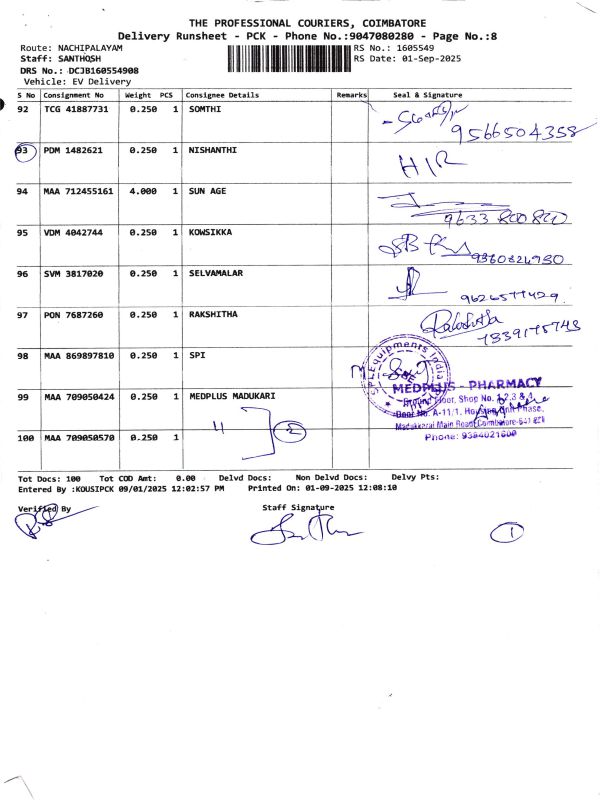 THE PROFESSIONAL COURIERS, COIMBATORE
Delivery Runsheet - PCK - Phone No.:9047080280 - Page No.:8
Route: NACHIPALAYAM RS No.: 1605549
Staff: SANTHOSH RS Date: 01-Sep-2025
DRS No.: DCJB160554908
Vehicle: EV Delivery
S No Consignment No Weight PCS Consignee Details Remarks Seal & Signature
92 TCG 41887731 0.250 1 SOMTHI
9566504358
93 PDM 1482621 0.250 1 NISHANTHI
H/R
94 MAA 712455161 4.000 1 SUN AGE
9633 800 800
95 VDM 4042744 0.250 1 KOWSIKKA
9360824930
96 SVM 3817020 0.250 1 SELVAMALAR
9626577429
97 PON 7687260 0.250 1 RAKSHITHA
Rakshitha
7339175743
98 MAA 869897810 0.250 1 SPI
SPI Equipments India
MEDPLUS - PHARMACY
99 MAA 709050424 0.250 1 MEDPLUS MADUKARI
Ground Floor, Shop No. 1,2,3 & 4,
Door No. A-11/1, Housing Unit Phase,
Madukkarai Main Road Coimbatore-641
Phone: 9384021600
100 MAA 709050570 0.250 1 " 2
Tot Docs: 100 Tot COD Amt: 0.00 Delvd Docs: Non Delvd Docs: Delvy Pts:
Entered By :KOUSIPCK 09/01/2025 12:02:57 PM Printed On: 01-09-2025 12:08:10
Verified By Staff Signature
1